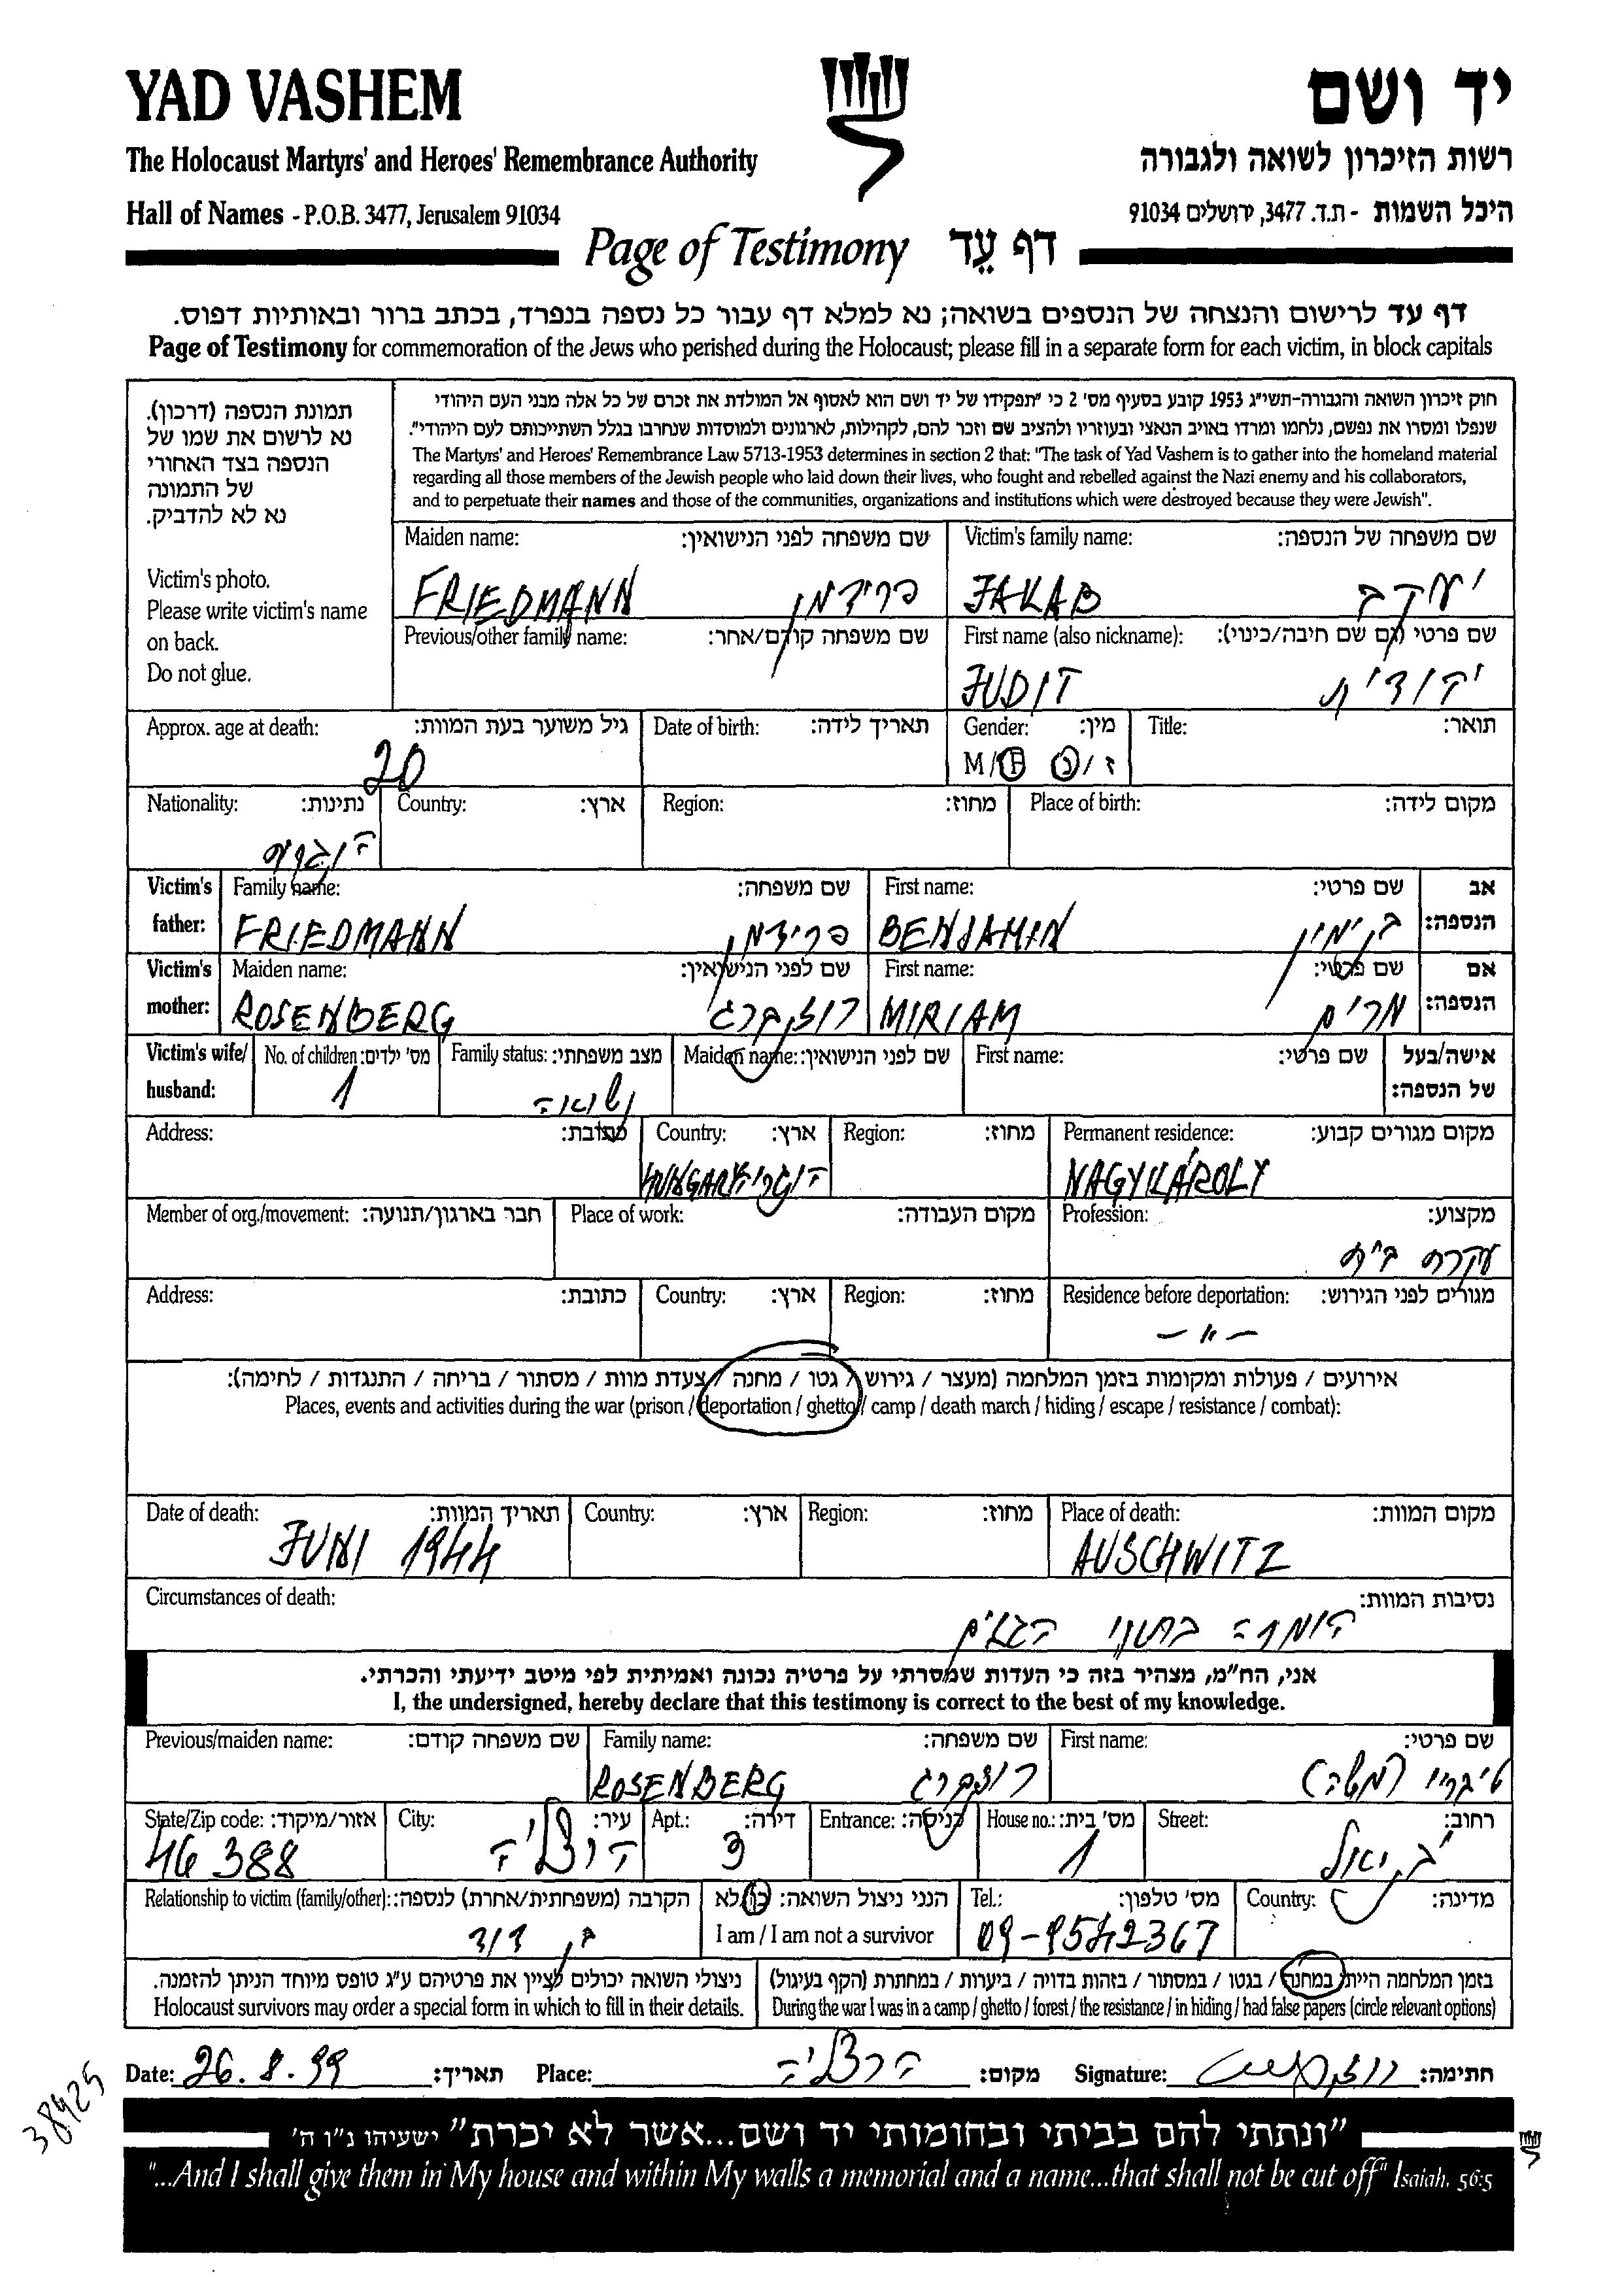 YAD VASHEM
יד ושם
The Holocaust Martyrs' and Heroes' Remembrance Authority
רשות הזיכרון לשואה ולגבורה
Hall of Names - P.O.B. 3477, Jerusalem 91034
היכל השמות - ת.ד. 3477, ירושלים 91034
Page of Testimony דף עֵד
דף עד לרישום והנצחה של הנספים בשואה; נא למלא דף עבור כל נספה בנפרד, בכתב ברור ובאותיות דפוס.
Page of Testimony for commemoration of the Jews who perished during the Holocaust; please fill in a separate form for each victim, in block capitals
תמונת הנספה (דרכון).
נא לרשום את שמו של
הנספה בצד האחורי
של התמונה
נא לא להדביק.
Victim's photo.
Please write victim's name
on back.
Do not glue.
חוק זיכרון השואה והגבורה-תשי"ג 1953 קובע בסעיף מס' 2 כי "תפקידו של יד ושם הוא לאסוף אל המולדת את זכרם של כל אלה מבני העם היהודי
שנפלו ומסרו את נפשם, נלחמו ומרדו באויב הנאצי ובעוזריו ולהציב שם וזכר להם, לקהילות, לארגונים ולמוסדות שנחרבו בגלל השתייכותם לעם היהודי".
The Martyrs' and Heroes' Remembrance Law 5713-1953 determines in section 2 that: "The task of Yad Vashem is to gather into the homeland material
regarding all those members of the Jewish people who laid down their lives, who fought and rebelled against the Nazi enemy and his collaborators,
and to perpetuate their names and those of the communities, organizations and institutions which were destroyed because they were Jewish".
Maiden name: שם משפחה לפני הנישואין: Victim's family name: שם משפחה של הנספה:
FRIEDMANN פרידמן JAKAB יעקב
Previous/other family name: שם משפחה קודם/אחר: First name (also nickname): שם פרטי (גם שם חיבה/כינוי):
JUDIT יהודית
Approx. age at death: גיל משוער בעת המוות: Date of birth: תאריך לידה: Gender: מין: Title: תואר:
20 M/F ז/נ
Nationality: נתינות: Country: ארץ: Region: מחוז: Place of birth: מקום לידה:
Victim's father: Family name: שם משפחה: First name: שם פרטי: אב הנספה:
FRIEDMANN פרידמן BENJAMIN בנימין
Victim's mother: Maiden name: שם לפני הנישואין: First name: שם פרטי: אם הנספה:
ROSENBERG רוזנברג MIRIAM מרים
Victim's wife/ husband: No. of children: מס' ילדים: Family status: מצב משפחתי: Maiden name: שם לפני הנישואין: First name: שם פרטי: אישה/בעל של הנספה:
1 נשואה
Address: כתובת: Country: ארץ: Region: מחוז: Permanent residence: מקום מגורים קבוע:
HUNGARY הונגריה NAGYKÁROLY
Member of org./movement: חבר בארגון/תנועה: Place of work: מקום העבודה: Profession: מקצוע:
עקרת בית
Address: כתובת: Country: ארץ: Region: מחוז: Residence before deportation: מגורים לפני הגירוש:
- " -
אירועים / פעולות ומקומות בזמן המלחמה (מעצר / גירוש / גטו / מחנה / צעדת מוות / מסתור / בריחה / התנגדות / לחימה):
Places, events and activities during the war (prison / deportation / ghetto / camp / death march / hiding / escape / resistance / combat):
Date of death: תאריך המוות: Country: ארץ: Region: מחוז: Place of death: מקום המוות:
JUNI 1944 AUSCHWITZ
Circumstances of death: נסיבות המוות:
הומתה בתנורי הגאים
אני, הח"מ, מצהיר בזה כי העדות שמסרתי על פרטיה נכונה ואמיתית לפי מיטב ידיעתי והכרתי.
I, the undersigned, hereby declare that this testimony is correct to the best of my knowledge.
Previous/maiden name: שם משפחה קודם: Family name: שם משפחה: First name: שם פרטי:
ROSENBERG רוזנברג טיבריו (משה)
State/Zip code: אזור/מיקוד: City: עיר: Apt.: דירה: Entrance: כניסה: House no.: מס' בית: Street: רחוב:
46388 הרצליה 3 1
Relationship to victim (family/other): הקרבה (משפחתית/אחרת) לנספה: הנני ניצול השואה: כן/לא Tel.: מס' טלפון: Country: מדינה:
בן דוד I am / I am not a survivor 09-9542367
ניצולי השואה יכולים לציין את פרטיהם ע"ג טופס מיוחד הניתן להזמנה. בזמן המלחמה הייתי במחנה / בגטו / במסתור / בזהות בדויה / ביערות / במחתרת (הקף בעיגול)
Holocaust survivors may order a special form in which to fill in their details. During the war I was in a camp / ghetto / forest / the resistance / in hiding / had false papers (circle relevant options)
Date: 26.8.99 תאריך: Place: הרצליה מקום: Signature: חתימה:
38925
"ונתתי להם בביתי ובחומותי יד ושם...אשר לא יכרת" ישעיהו נ"ו ה'
"...And I shall give them in My house and within My walls a memorial and a name...that shall not be cut off" Isaiah, 56:5